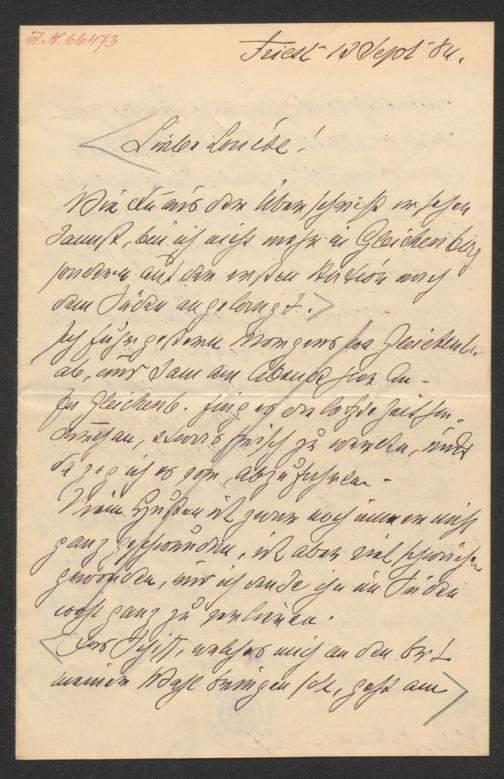 J.N. 66473
Triest 12 Sept 84.
Liebe Louise!
Wie Du aus der Überschrift ersehen
kannst, bin ich nicht mehr in Gleichenberg
sondern auf der ersten Station nach
dem Süden angelangt.
Ich fuhr gestern Morgens von Gleichenb.
ab, und kam am Abende hier an.
In Gleichenb. fing es die letzte Zeit
an, etwas frisch zu werden, und
da zog ich es vor, abzufahren.
Mein Husten ist zwar noch immer nicht
ganz geschwunden, ist aber viel schwächer
geworden, und ich denke ihn im Süden
wohl ganz zu verlieren.
Das Schiff, welches mich an den Ort
meiner Wahl bringen soll, geht am